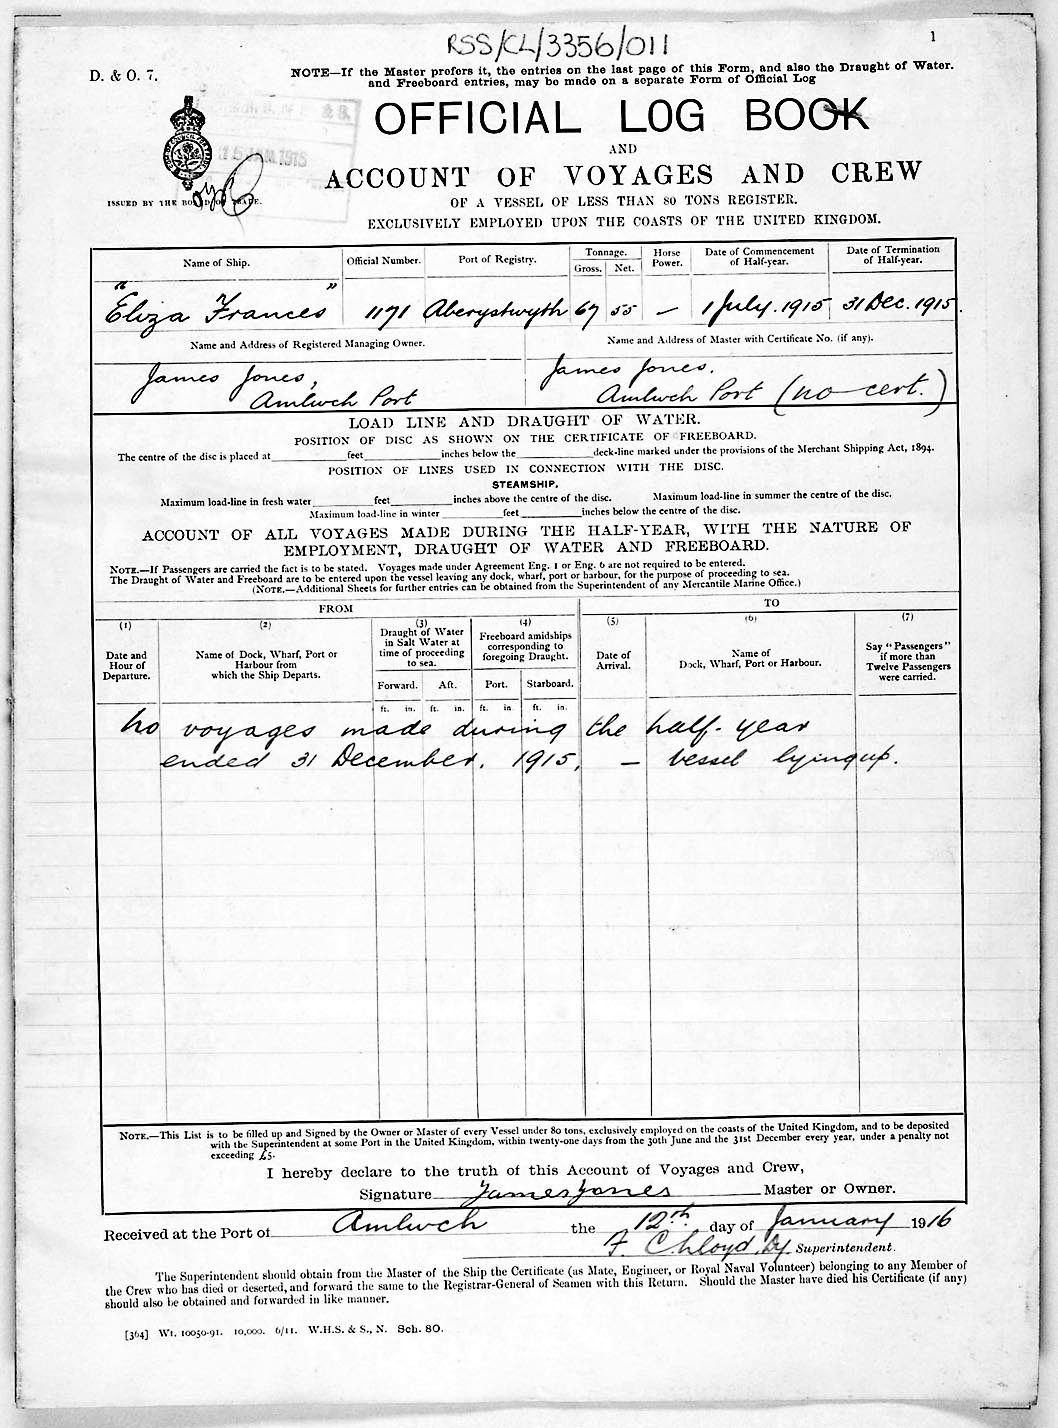 RSS/CL/3356/011
1
D. & O. 7.
NOTE—If the Master prefers it, the entries on the last page of this Form, and also the Draught of Water.
and Freeboard entries, may be made on a separate Form of Official Log
OFFICIAL LOG BOOK
AND
ACCOUNT OF VOYAGES AND CREW
OF A VESSEL OF LESS THAN 80 TONS REGISTER.
EXCLUSIVELY EMPLOYED UPON THE COASTS OF THE UNITED KINGDOM.
ISSUED BY THE BOARD OF TRADE.
Name of Ship. Official Number. Port of Registry. Tonnage. Gross. Net. Horse Power. Date of Commencement of Half-year. Date of Termination of Half-year.
"Eliza Frances" 1171 Aberystwyth 67 55 — 1 July. 1915 31 Dec. 1915.
Name and Address of Registered Managing Owner. Name and Address of Master with Certificate No. (if any).
James Jones, James Jones.
Amlwch Port Amlwch Port (no cert.)
LOAD LINE AND DRAUGHT OF WATER.
POSITION OF DISC AS SHOWN ON THE CERTIFICATE OF FREEBOARD.
The centre of the disc is placed at feet inches below the deck-line marked under the provisions of the Merchant Shipping Act, 1894.
POSITION OF LINES USED IN CONNECTION WITH THE DISC.
STEAMSHIP.
Maximum load-line in fresh water feet inches above the centre of the disc. Maximum load-line in summer the centre of the disc.
Maximum load-line in winter feet inches below the centre of the disc.
ACCOUNT OF ALL VOYAGES MADE DURING THE HALF-YEAR, WITH THE NATURE OF
EMPLOYMENT, DRAUGHT OF WATER AND FREEBOARD.
NOTE.—If Passengers are carried the fact is to be stated. Voyages made under Agreement Eng. 1 or Eng. 6 are not required to be entered.
The Draught of Water and Freeboard are to be entered upon the vessel leaving any dock, wharf, port or harbour, for the purpose of proceeding to sea.
(NOTE.—Additional Sheets for further entries can be obtained from the Superintendent of any Mercantile Marine Office.)
FROM TO
(1) (2) (3) (4) (5) (6) (7)
Date and Hour of Departure.
Name of Dock, Wharf, Port or Harbour from which the Ship Departs.
Draught of Water in Salt Water at time of proceeding to sea.
Freeboard amidships corresponding to foregoing Draught.
Date of Arrival.
Name of Dock, Wharf, Port or Harbour.
Say "Passengers" if more than Twelve Passengers were carried.
Forward. Aft. Port. Starboard.
ft. in. ft. in. ft. in ft. in.
No voyages made during the half-year
ended 31 December. 1915, — vessel lying up.
NOTE.—This List is to be filled up and Signed by the Owner or Master of every Vessel under 80 tons, exclusively employed on the coasts of the United Kingdom, and to be deposited
with the Superintendent at some Port in the United Kingdom, within twenty-one days from the 30th June and the 31st December every year, under a penalty not
exceeding £5.
I hereby declare to the truth of this Account of Voyages and Crew,
Signature James Jones Master or Owner.
Received at the Port of Amlwch the 12th day of January 1916
Superintendent.
The Superintendent should obtain from the Master of the Ship the Certificate (as Mate, Engineer, or Royal Naval Volunteer) belonging to any Member of
the Crew who has died or deserted, and forward the same to the Registrar-General of Seamen with this Return. Should the Master have died his Certificate (if any)
should also be obtained and forwarded in like manner.
[364] Wt. 10050-91. 10,000. 6/11. W.H.S. & S., N. Sch. 80.